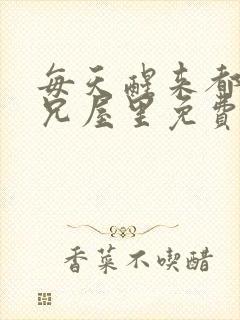 每天醒来都
兄屋里免費
香菜不喫醋